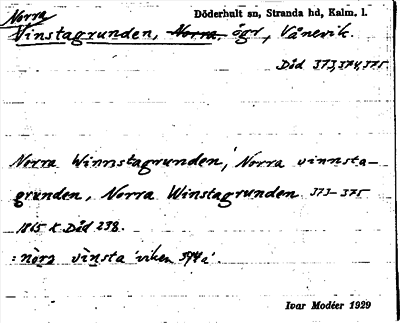 Norra
Döderhult sn, Stranda hd, Kalm. l.
Vinstagrunden, Norra, ögr, Vånevik.
Död 373,374,375.
Norra Winnstagrunden, Norra vinnsta-
grunden, Norra Winstagrunden 373-375
1865 K Död 238.
: nòra vìnsta
Ivar Modéer 1929